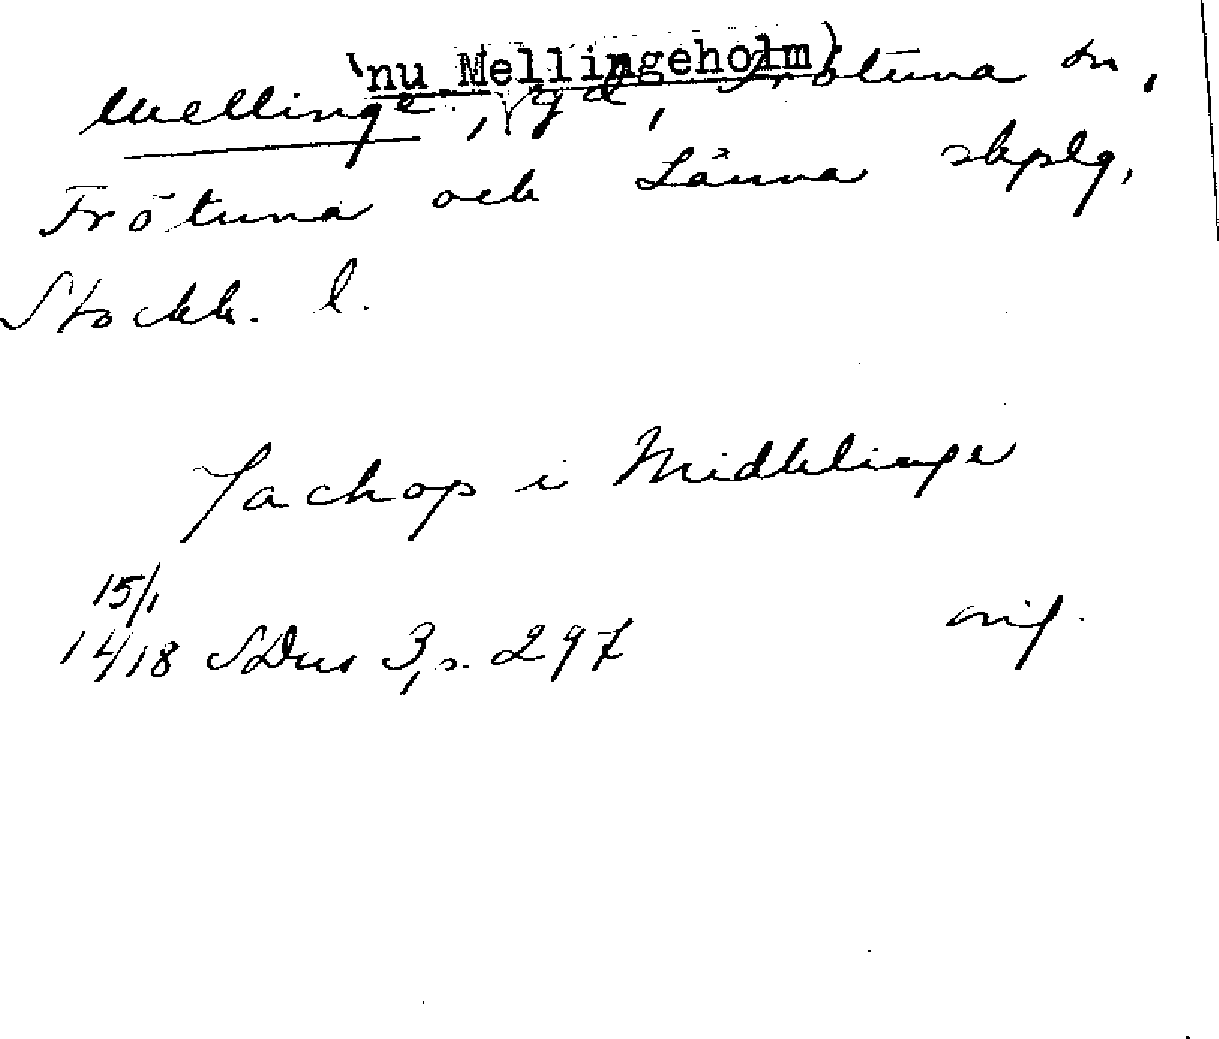 (nu Mellingeholm)
Mellinge, gd, Frötuna sn,
Frötuna och Länna skplg,
Stockh. l.
Jachop i Midhlinge
15/1
1418 SDns 3, s. 297 orig.